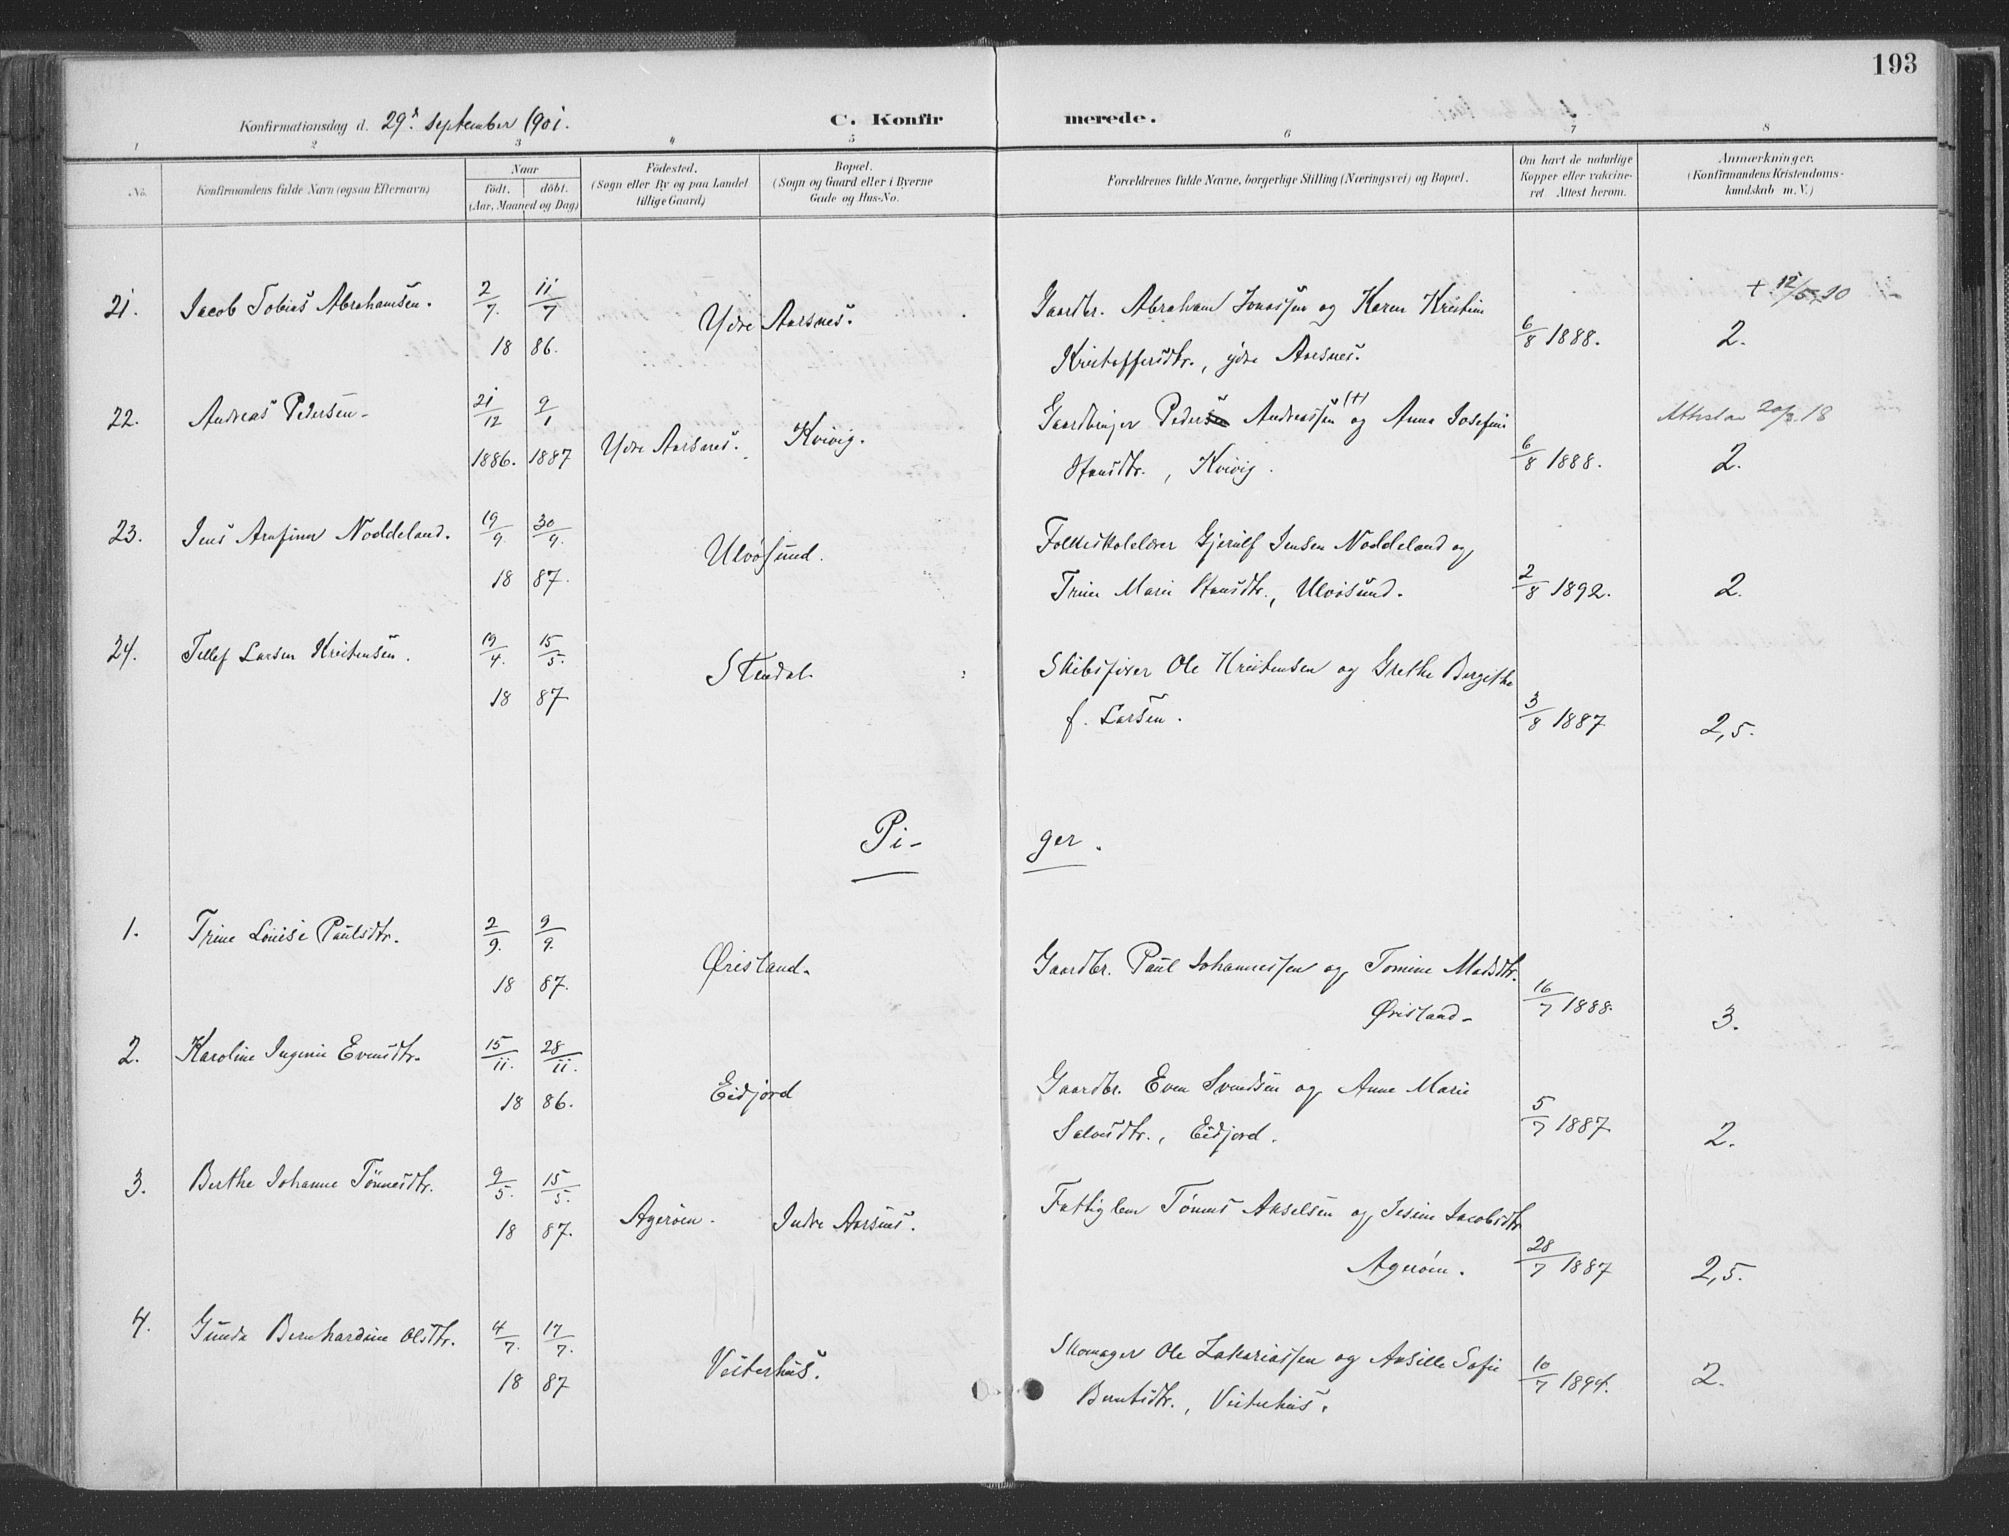 193
Konfirmationsdag d. 29. September 1901. C. Konfirmerede.
1 2 3 4 5 6 7 8
No. Konfirmandens fulde Navn (ogsaa Efternavn) Naar født. døbt. (Aar, Maaned og Dag) Fødested. (Sogn eller By og paa Landet tillige Gaard) Bopæl. (Sogn og Gaard eller i Byerne Gade og Hus-No. Forældrenes fulde Navne, borgerlige Stilling (Næringsvei) og Bopæl. Om havt de naturlige Kopper eller vakcineret Attest herom. Anmærkninger. (Konfirmandens Kristendomskundskab m. V.)
21. Jacob Tobias Abrahamsen. 2/7. 11/7 Ydre Aarsnes. Gaardbr. Abraham Jonassen og Karen Kristine
18 86. Kristoffersdtr., ydre Aarsnes. 6/8 1888. 2.
22. Andreas Pedersen 21/12 9/1 Gaardbruger Peder Andreassen (+) og Anna Josefine
1886. 1887 Ydre Aarsnes. Kvivig. Hansdtr., Kvivig. 6/8 1888. 2.
23. Jens Arnfinn Noddeland. 19/9. 30/9. Ulvøsund. Folkeskolelærer Gjerulf Jensen Noddeland og
18 87. Trine Marie Hansdtr., Ulvøsund. 2/8 1892. 2.
24. Tellef Larsen Kristensen. 19/4. 15/5. Stendal. Skibsfører Ole Kristensen og Grethe Bergithe
18 87 f. Larsen. 3/8 1887 2,5.
Pi- ger.
1. Trine Louise Paulsdtr. 2/9. 9/9. Øvisland. Gaardbr. Paul Johannessen og Tomine Madsdtr.
18 87. Øvisland. 16/7 1888. 3.
2. Karoline Ingenie Evensdtr. 15/11. 28/11. Eidjord Gaardbr. Even Svendsen og Anne Marie
18 86. Salvesdtr., Eidjord. 5/7 1887 2.
3. Berthe Johanne Tønnesdtr. 9/5. 15/5. Agerøen. Indre Aarsnes. Fattiglem Tønnes Akselsen og Jesine Jacobsdtr.
18 87. Agerøen. 28/7 1887 2,5.
4. Gunda Bernhardine Olsdtr. 4/7. 17/7. Vesterhus. Skomager Ole Zakariassen og Aasille Sofie
18 87 Berntsdtr., Vesterhus. 10/7 1894. 2.